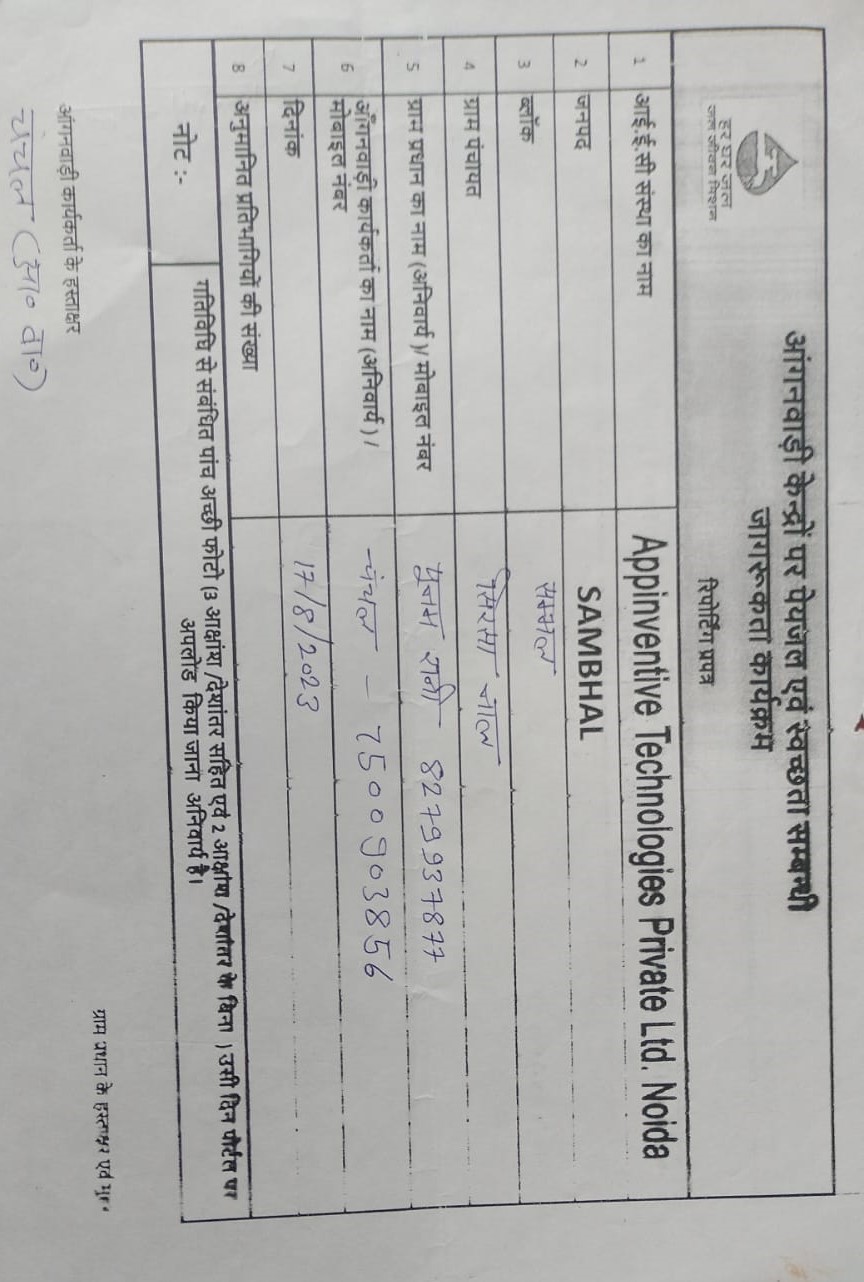 आंगनवाड़ी केन्द्रों पर पेयजल एवं स्वच्छता सम्बन्धी
जागरूकता कार्यक्रम
हर घर जल
जल जीवन मिशन
रिपोर्टिंग प्रपत्र
1 आई.ई.सी संस्था का नाम Appinventive Technologies Private Ltd. Noida
2 जनपद SAMBHAL
3 ब्लॉक सम्भल
4 ग्राम पंचायत सिरसा नाल
5 ग्राम प्रधान का नाम (अनिवार्य )/ मोबाइल नंबर पूनम रानी - 8279937877
6 आँगनवाड़ी कार्यकर्ता का नाम (अनिवार्य ) /
मोबाइल नंबर चंचल - 7500903856
7 दिनांक 17/8/2023
8 अनुमानित प्रतिभागियों की संख्या
नोट :- गतिविधि से संबंधित पांच अच्छी फोटो (3 आक्षांश /देशांतर सहित एवं 2 आक्षांश /देशांतर के बिना ) उसी दिन पोर्टल पर
अपलोड किया जाना अनिवार्य है।
आंगनवाड़ी कार्यकर्ता के हस्ताक्षर
ग्राम प्रधान के हस्ताक्षर एवं
चंचल (आ० वा०)